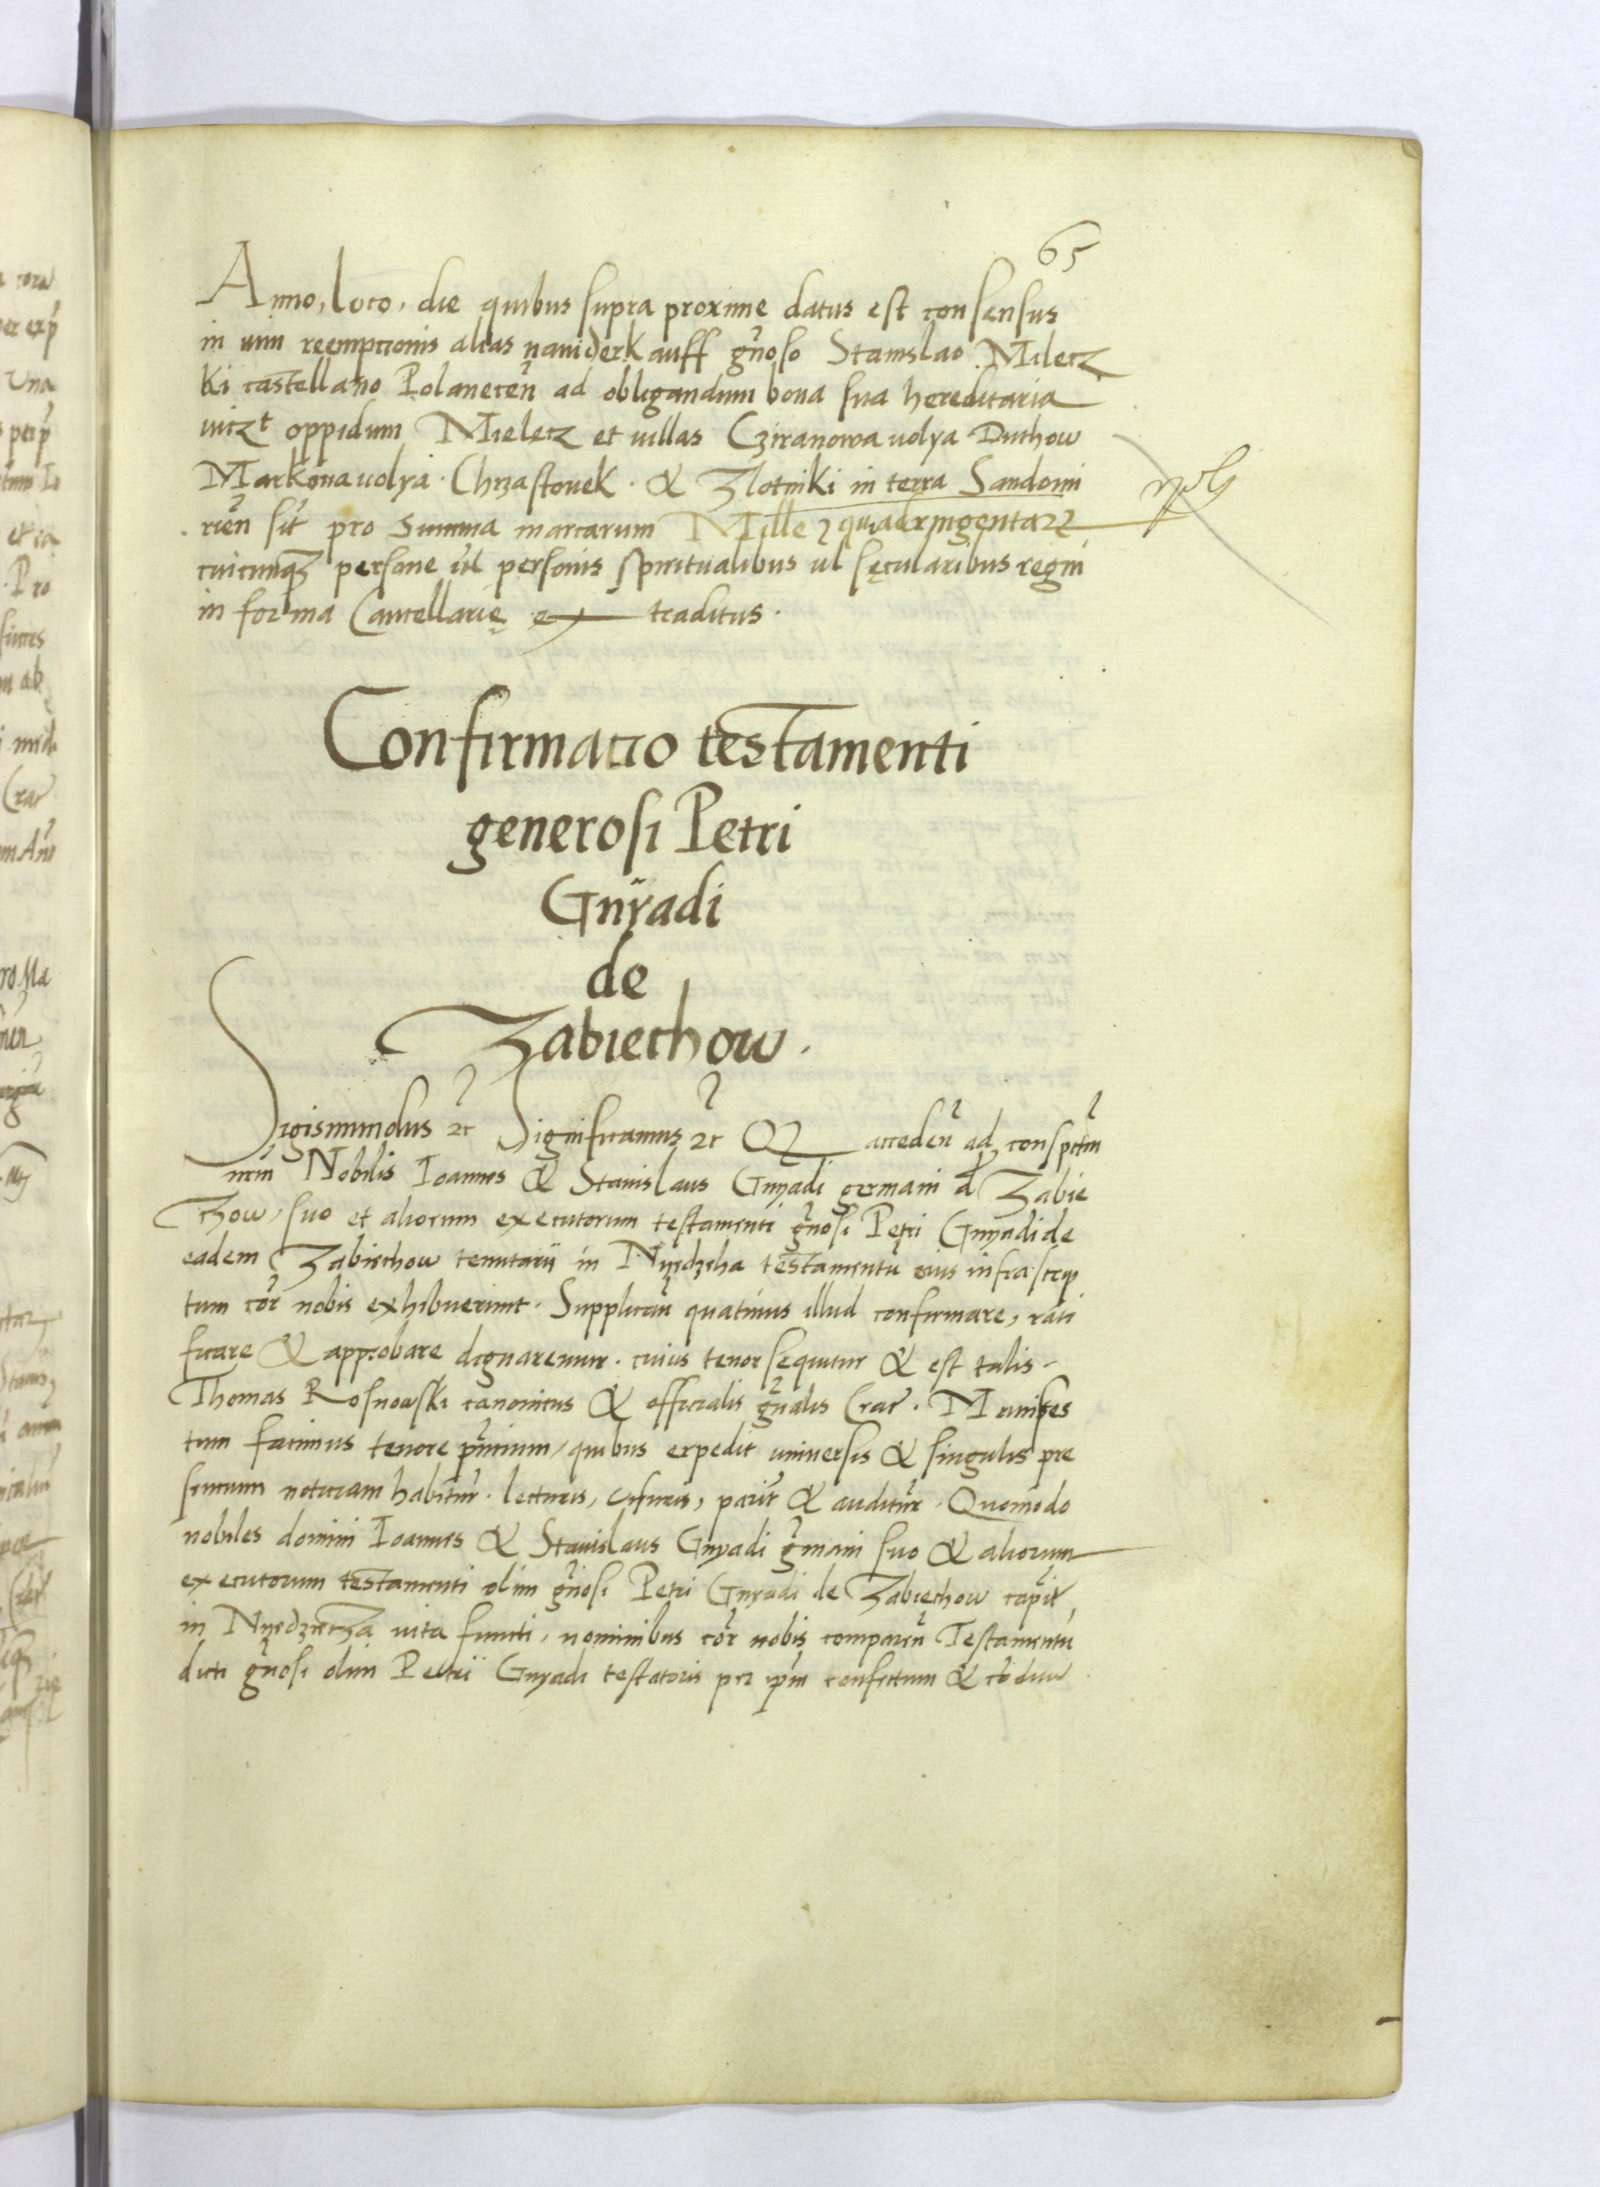 65
Anno, loco, die quibus supra proxime datus est consensus
in vim reemptionis alias na viderkauff gnoso Stanislao Mielecz
ki castellano Polanecen ad obligandum bona sua hereditaria
vitzt oppidum Mielecz et villas Cziranowa volya Duchow
Markona volya. Chrzastouek. & Zlotniki in terra Sandomi
rien sit pro summa marcarum Mille quadringentar
cuicunqz persone vel personis spiritualibus vl secularibus regni
in forma Cancellarie ex traditus.
Confirmatio testamenti
generosi Petri
Gnÿadi
de
Zabiechow.
Sigismundus zc Significamus zc Q acceden ad conspectum
nrm Nobilis Ioannes & Stanislaus Gnyadi germani d Zabie
chow, suo et aliorum executorum testamenti gnosi Petri Gnyadi de
eadem Zabiechow tenutarii in Nyedzcha testamentu eius infrascrip
tum cor nobis exhibuerunt. Supplican quatinus illud confirmare, rati
ficare & approbare dignaremur. cuius tenor sequitur & est talis.
Thomas Rosnowski canonicus & officialis gnalis Crac. Manifes
tum facimus tenore pntium, quibus expedit universis & singulis pre
sentium noticiam habitur. lecturis, visuris, parit & auditur. Quomodo
nobiles domini Ioannes & Stanislaus Gnyadi gmani suo & aliorum
executorum testamenti olim gnosi Petri Gnyadi de Zabiechow capit
in Nyedzwecza vita functi, nominibus cor nobis comparen Testamentu
dicti gnosi olim Petrii Gnyadi testatoris per ipm confectum & conduc